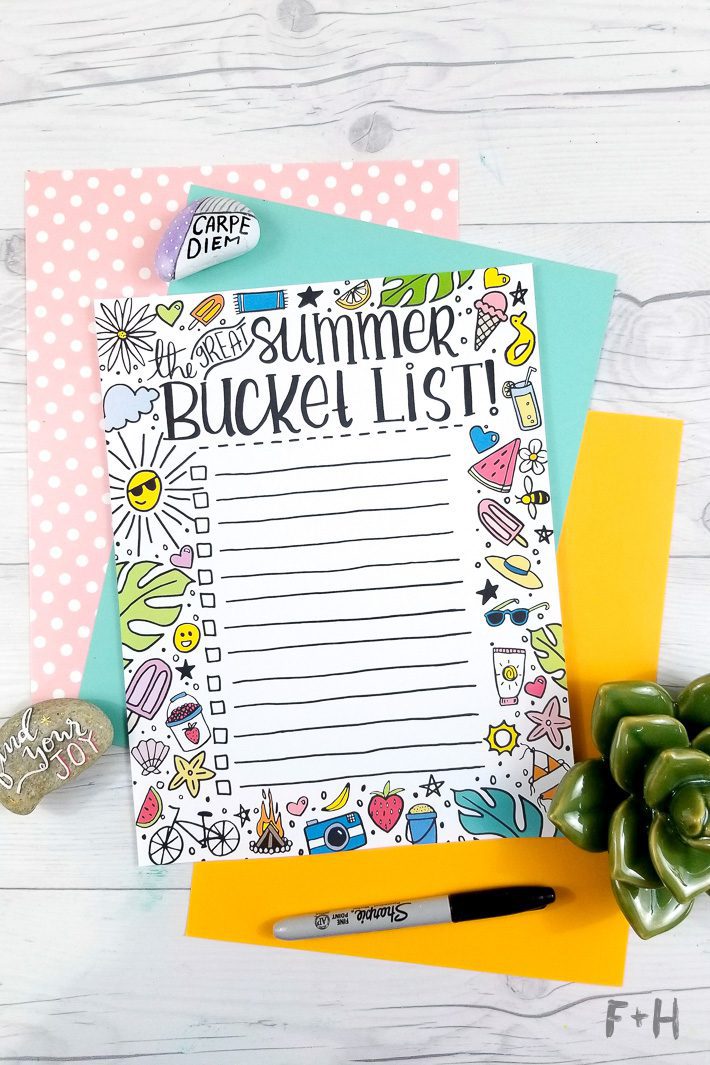 CARPE
DIEM
the GREAT summer
BUCKET LIST!
find your
JOY
Sharpie.
FINE
POINT
AP
F+H